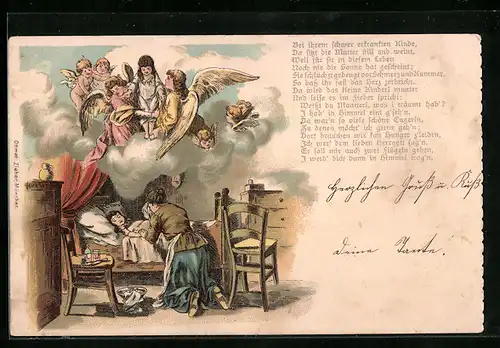 Bei ihrem schwer erkrankten Kinde,
Da sitzt die Mutter still und weint,
Weil ihr ist in diesem Leben
Noch nie die Sonne hat gescheint;
Sie schluchzt gebeugt vor Schmerz und Kummer,
So daß ihr fast das Herz zerbricht.
Da wird das kleine Kinderl munter
Und leise es im Fieber spricht:
Weißt du Muatterl, was i träumt hab'?
I hab' in Himmel eini g'seh'n.
Da war'n so viele schöne Engerln,
Zu denen möcht' ich gerne geh'n;
Dort brauchen wir kan Hunger z'leiden,
Ich wer' dem lieben Herrgott sag'n,
Er soll mir auch zwei Flügeln geben,
I weid' dich dann in Himmel trag'n.
Herzlichen Gruß u. Kuß
Deine Tante!
Ottmar Zieher, München.